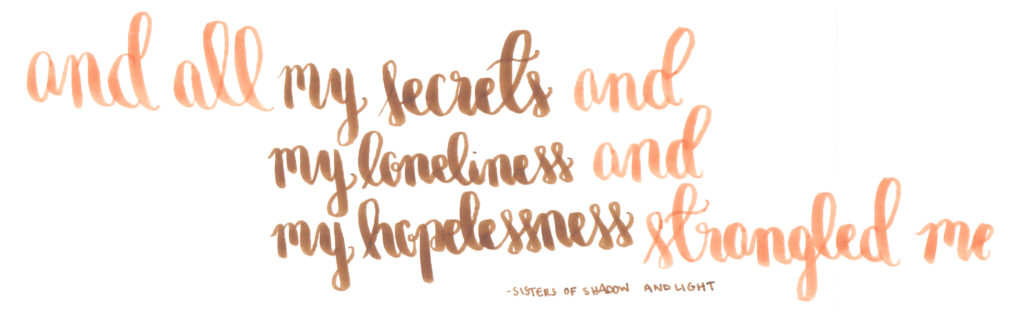 and all my secrets and
my loneliness and
my hopelessness strangled me
-SISTERS OF SHADOW AND LIGHT